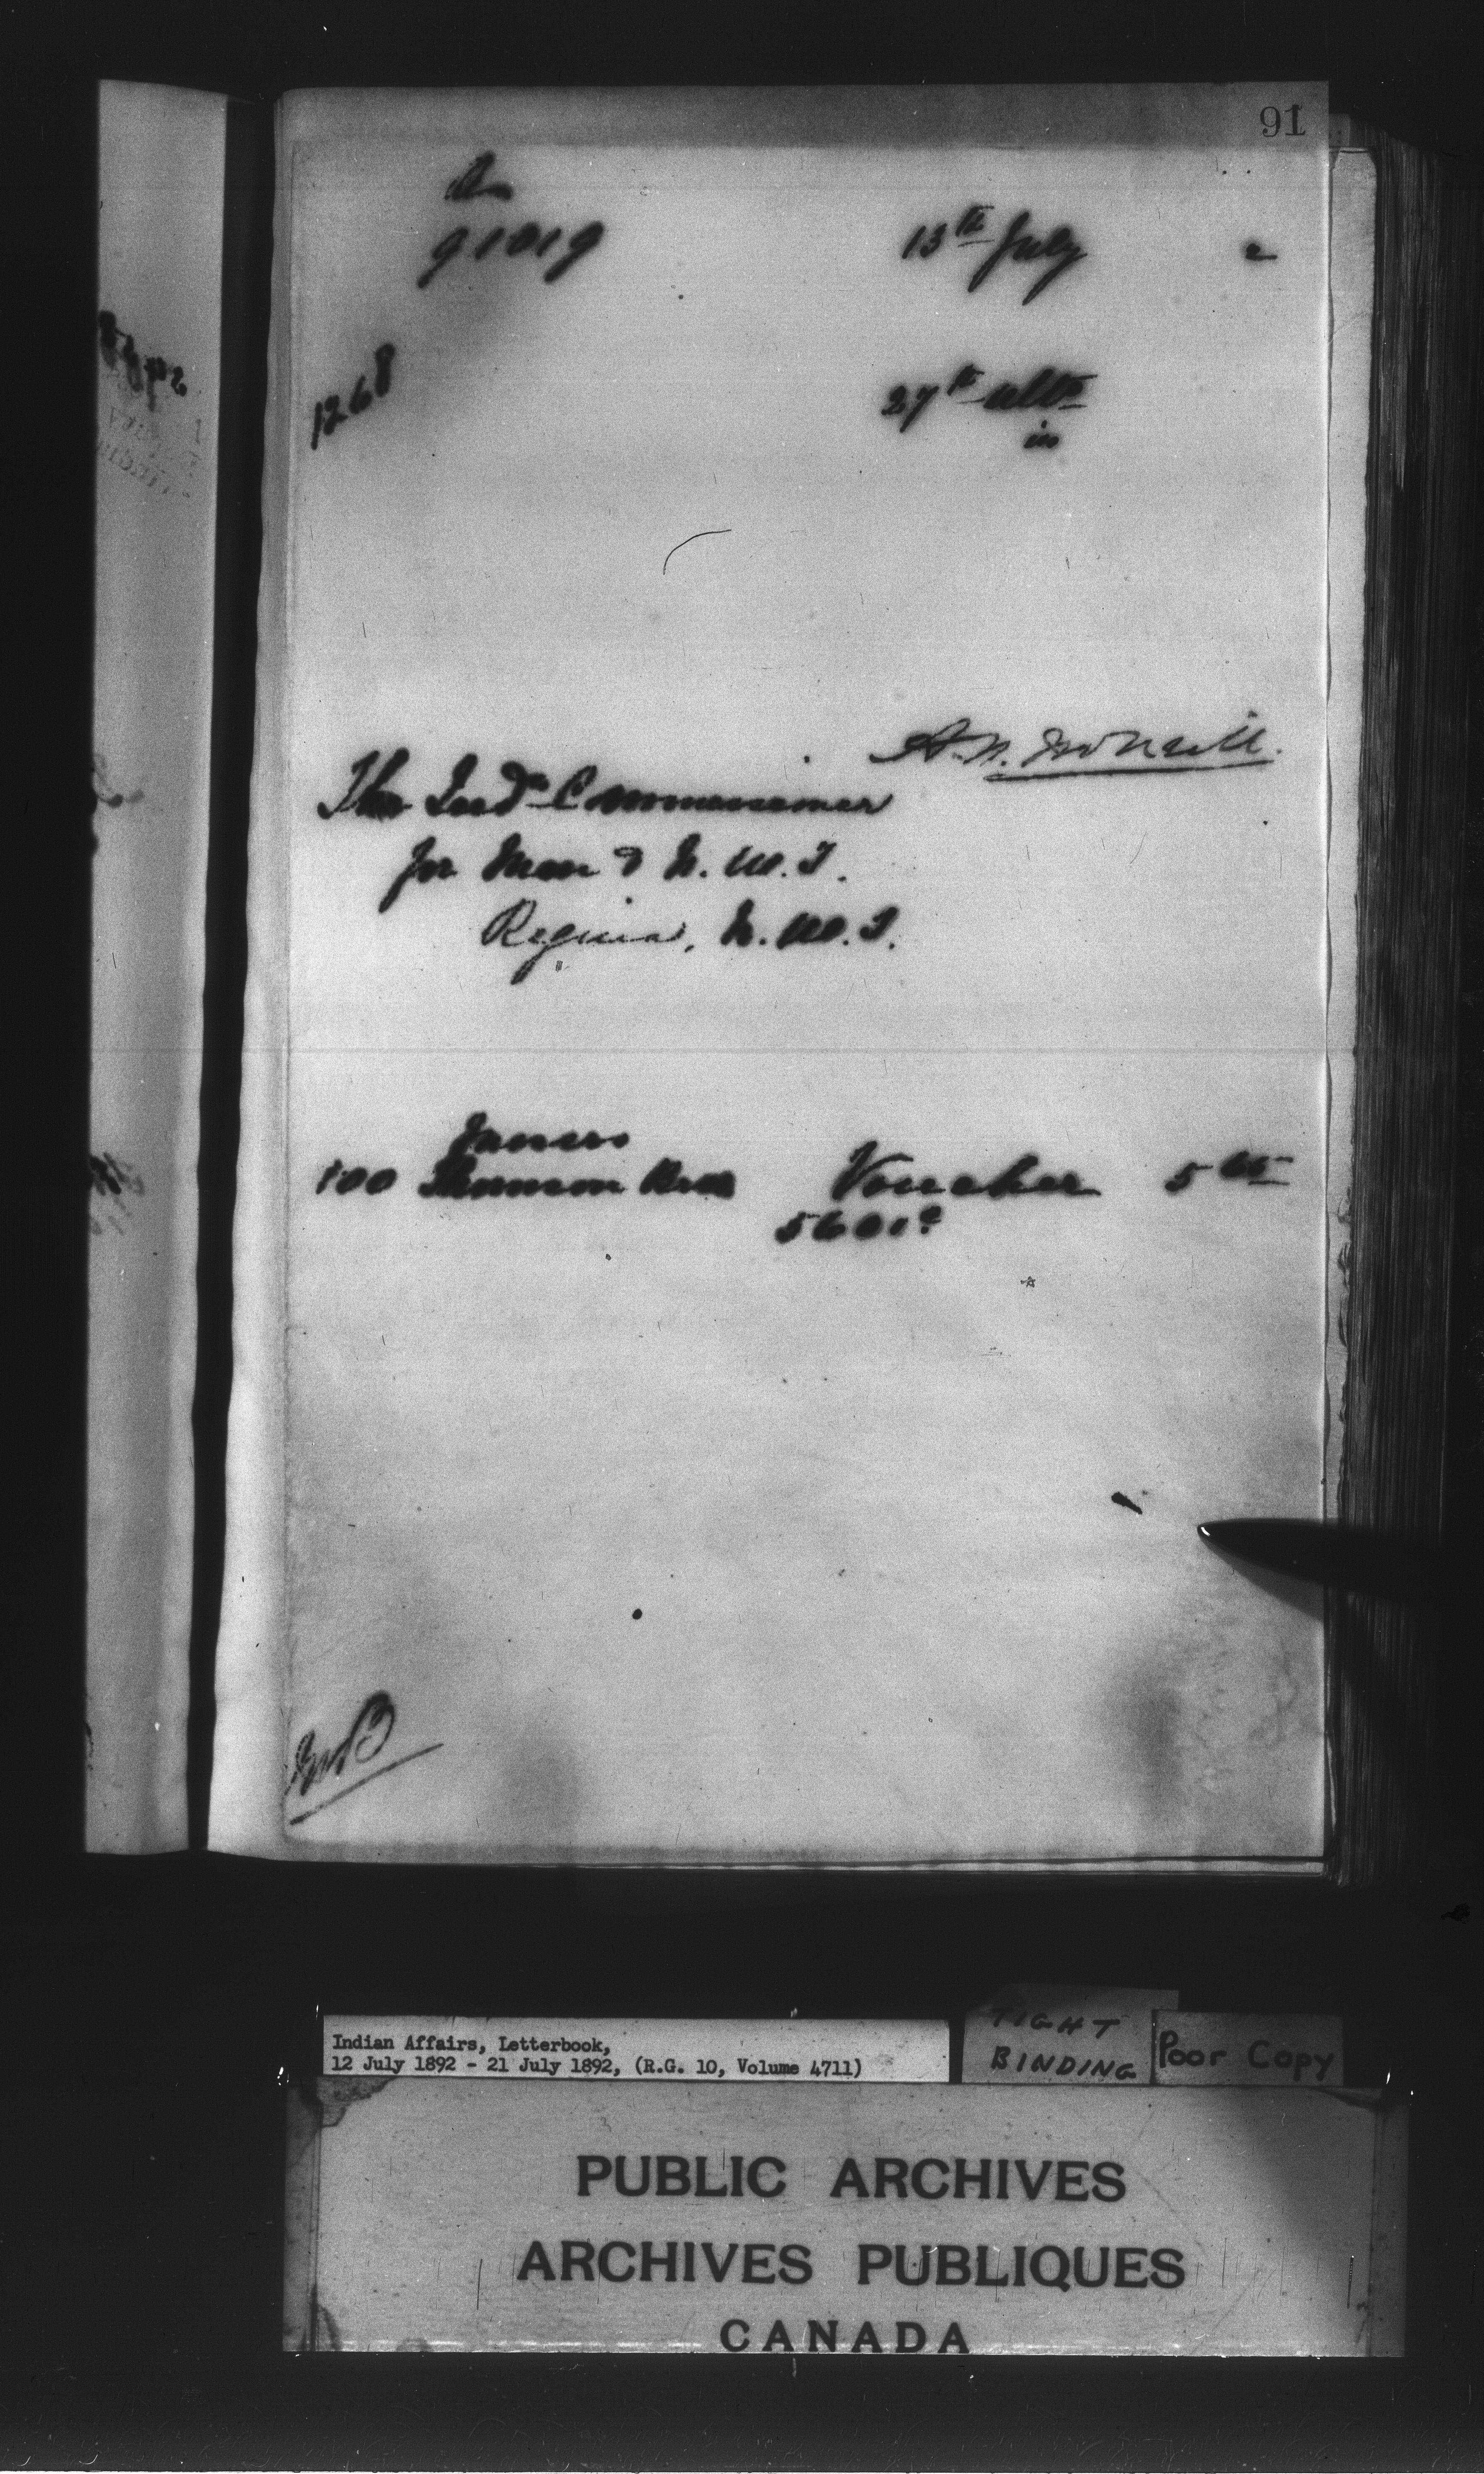 91
91019
13th July 2
1268
27th ulto
in
A. N. McNeill.
The Indn Commissioner
for Man & N. W. T.
Regina, N. W. T.
James
100 Thomson Bros Voucher 5 cts
5601
Indian Affairs, Letterbook,
12 July 1892 - 21 July 1892, (R.G. 10, Volume 4711)
TIGHT
BINDING
Poor Copy
PUBLIC ARCHIVES
ARCHIVES PUBLIQUES
CANADA